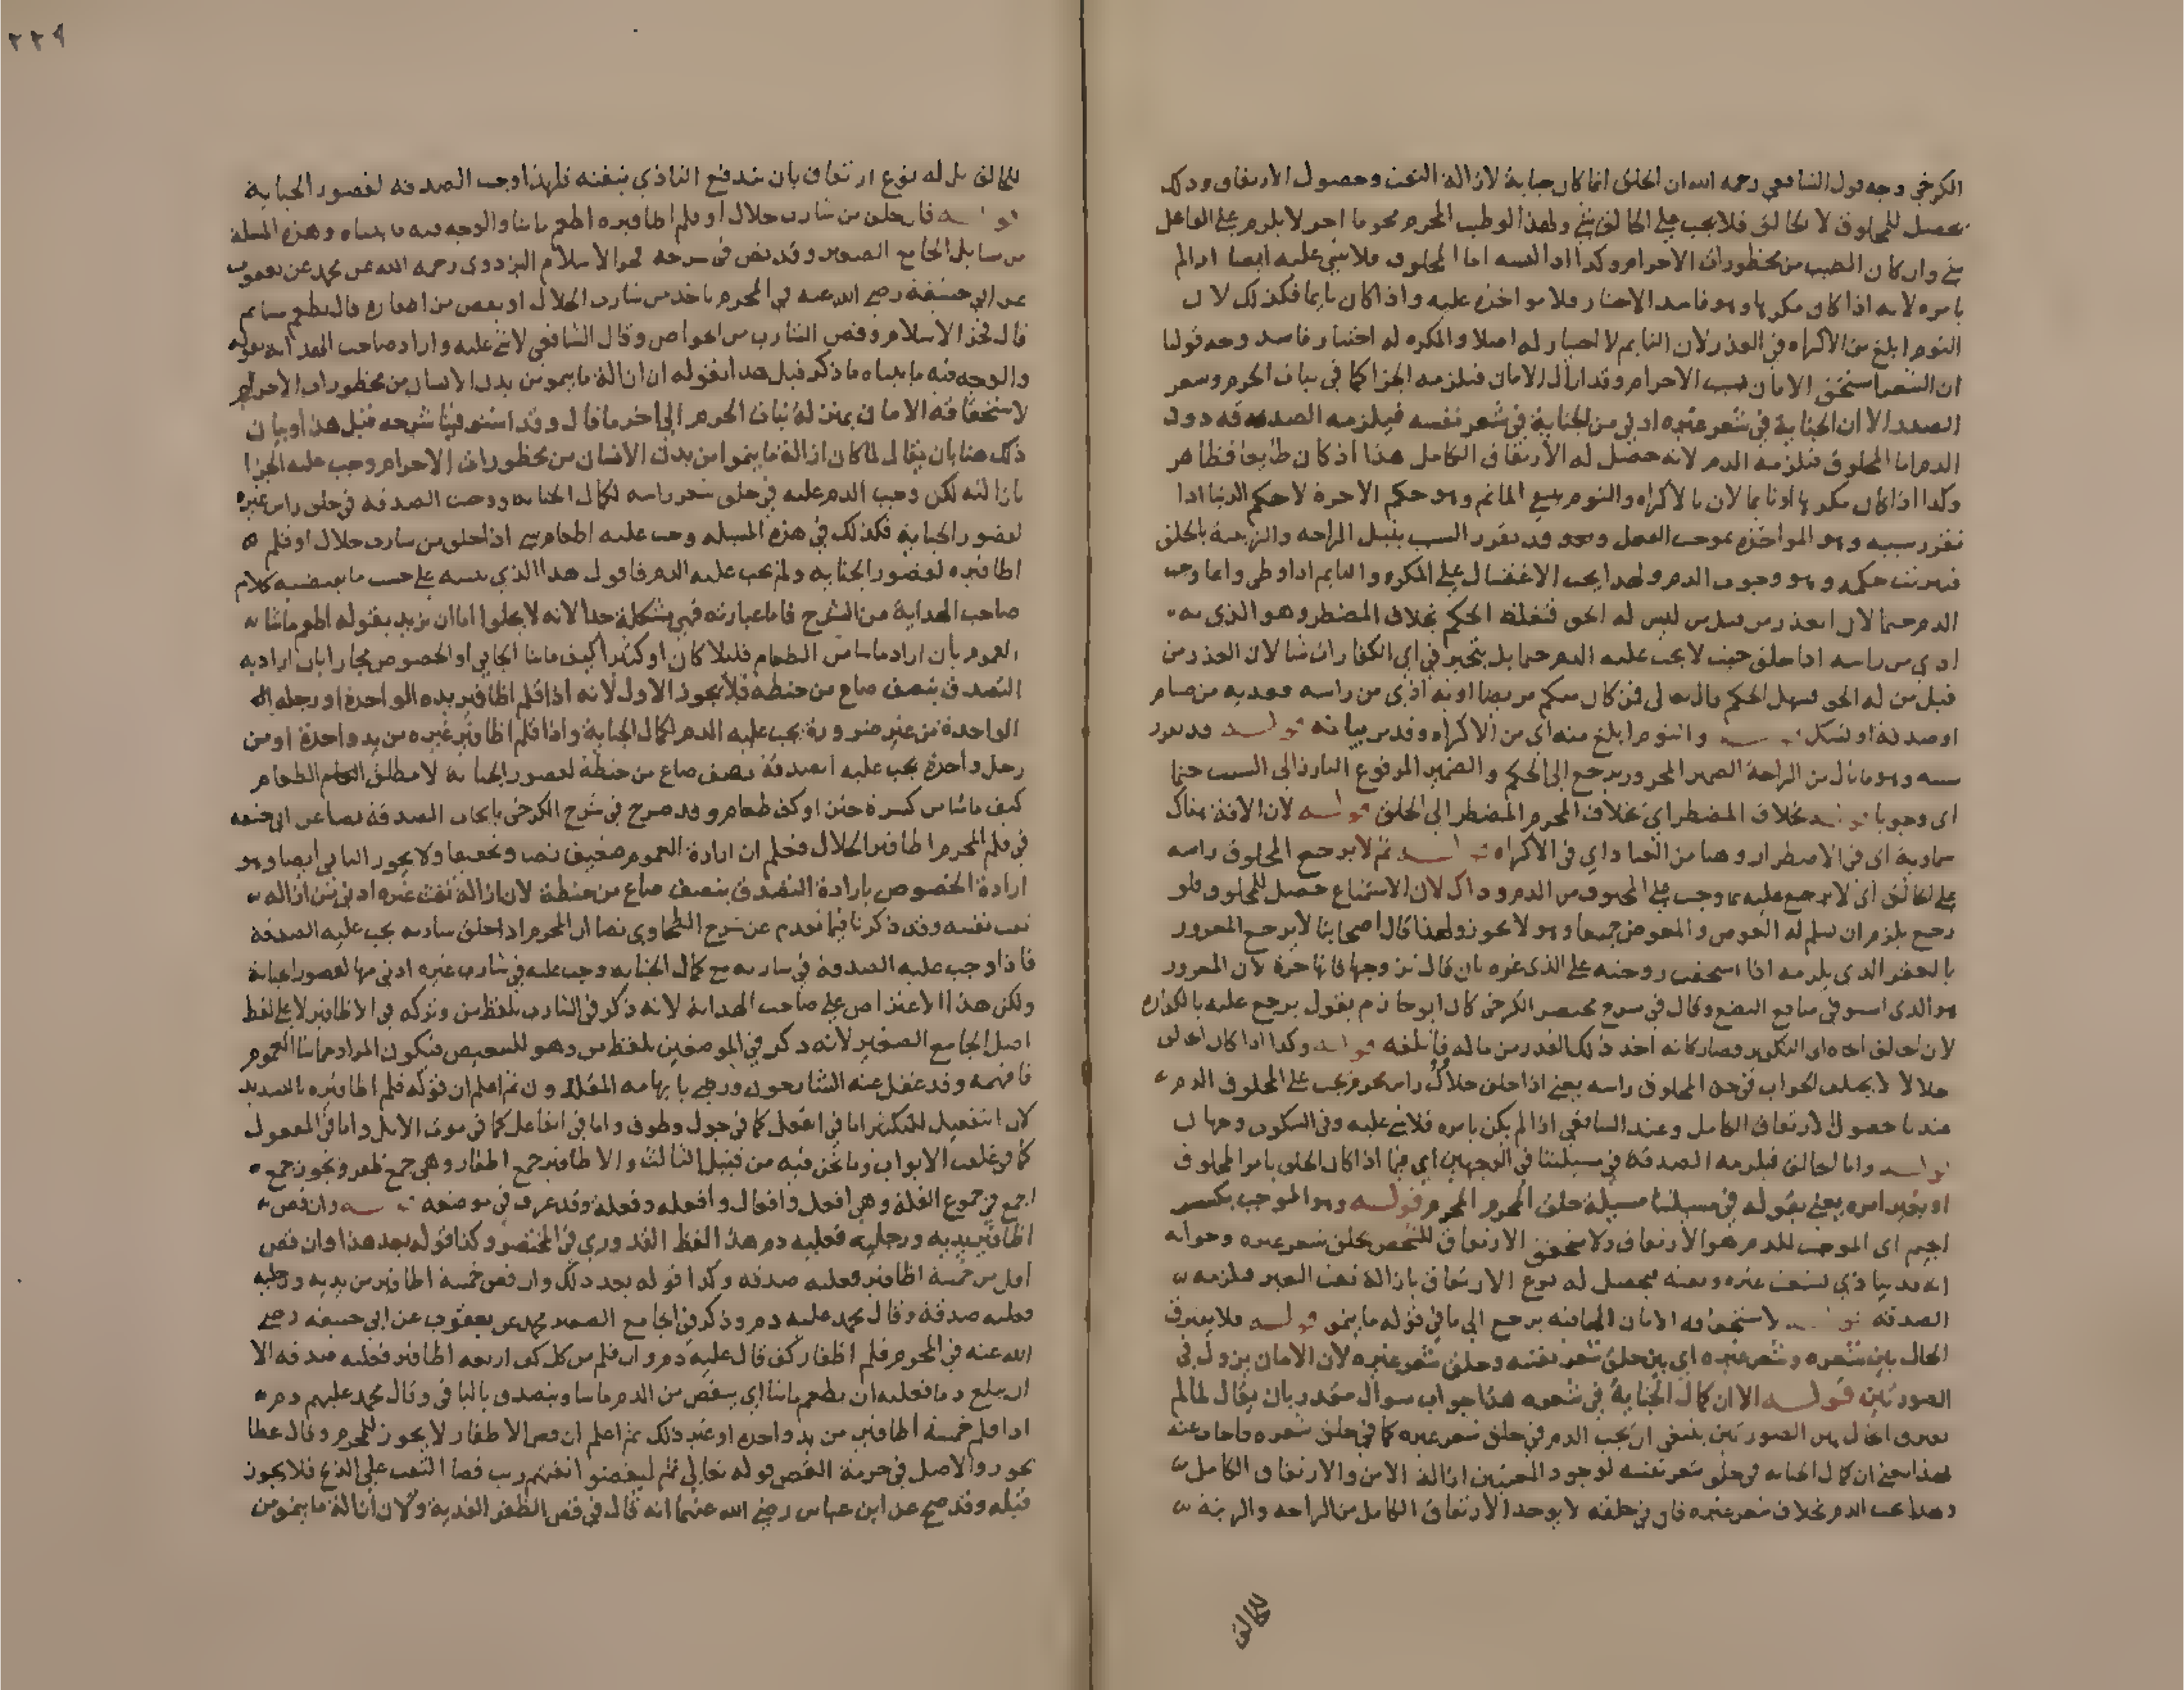 الكرخي وجه قول الشافعي رحمه الله ان الحلق انما كان جناية لازالة التفث وحصول الارتفاق وذلك
يحصل للمحلوق لا للحالق فلا يجب على الحالق شي ولهذا لو طيب المحرم محرما اخر لا يلزم على الفاعل
شي وان كان الطيب من محظورات الاحرام وكذا اذا البسه اما المحلوق فلا شي عليه ايضا اذا لم
يامره لانه اذا كان مكرها وهو فاسد الاختيار فلا مواخذة عليه واذا كان نايما فكذلك لان
النوم ابلغ من الاكراه في العذر لان النايم لا اختيار له اصلا والمكره له اختيار فاسد وجه قولنا
ان الشعر استحق الامان بسبب الاحرام وقد ازال الامان فيلزمه الجزا كما في نبات الحرم وشعر
الصيد الا ان الجناية في شعر غيره ادني من الجناية في شعر نفسه فيلزمه الصدقة دون
الدم اما المحلوق فيلزمه الدم لانه حصل له الارتفاق الكامل هذا اذا كان طايعا فظاهر
وكذا اذا كان مكرها او نايما لان بالاكراه والنوم ينتفي الماثم وهو حكم الاخرة لا حكم الدنيا اذا
تقرر سببه وهو المواخذة بموجب الفعل وهو قد تقرر السبب بنيل الراحة والزينة بالحلق
فيترتب حكمه وهو وجوب الدم ولهذا يجب الاغتسال على المكره والنايم اذا وطي وانما وجب
الدم حتما لان العذر من قبل من ليس له الحق فتغلظ الحكم بخلاف المضطر وهو الذي به
اذي من راسه اذا حلق حيث لا يجب عليه الدم حتما بل يتخير في اي الكفارات شا لان العذر من
قبل من له الحق فسهل الحكم قال تعالى فمن كان منكم مريضا او به اذي من راسه ففدية من صيام
او صدقة او نسك قولـــه والنوم ابلغ منه اي من الاكراه وقد مر بيانه قولـــه وقد تقرر
سببه وهو ما نال من الراحة الضمير المجرور يرجع الى الحكم والضمير المرفوع البارز الى السبب حتما
اي وجوبا قولـــه بخلاف المضطر اي بخلاف المحرم المضطر الى الحلق قولـــه لان الافة هناك
سماوية اي في الاضطرار وهنا من العباد اي في الاكراه قولـــه ثم لا يرجع المحلوق راسه
على الحالق اي لا يرجع عليه بما وجب على المحلوق من الدم وذاك لان الاستمتاع حصل للمحلوق فلو
رجع يلزم ان يسلم له العوض والمعوض جميعا وهو لا يجوز ولهذا قال اصحابنا لا يرجع المغرور
بالعقر الذي يلزمه اذا استحقت زوجته على الذي غره بان قال تزوجها فانها حرة لان المغرور
هو الذي استوفى منافع البضع وقال في شرح مختصر الكرخي كان ابو حازم يقول يرجع عليه بالكفارة
لان الحالق الجاه الى التكفير فصار كانه اخذ ذلك القدر من ماله فاتلفه قولـــه وكذا اذا كان الحالق
حلالا لا يختلف الجواب في حق المحلوق راسه يعني اذا حلق حلال راس محرم يجب على المحلوق الدم
عندنا حصول الارتفاق الكامل وعند الشافعي اذا لم يكن بامره فلا شي عليه وفي السكوت وجهان
قولـــه واما الحالق فيلزمه الصدقة في مسيلتنا في الوجهين اي فيما اذا كان الحلق بامر المحلوق
او بغير امره يعني بقوله في مسيلتنا مسيلة حلق المحرم المحرم قولـــه وهو الموجب بكسر
الجيم اي الموجب للدم هو الارتفاق ولا يتحقق الارتفاق للشخص بحلق شعر غيره وجوابه
انه قد يتاذي بتفث غيره فيحصل له نوع الارتفاق بازالة تفث الغير فيلزمه
الصدقة قولـــه لاستحقاقه الامان الها فيه يرجع الى ما في قوله ما ينمو قولـــه فلا يفترق
الحال بين شعره وشعر غيره اي بين حلق شعر نفسه وحلق شعر غيره لان الامان يزول في
الصورتين قولـــه الا ان كمال الجناية في شعره هذا جواب سوال مقدر بان يقال لما لم
يفترق الحال بين الصورتين ينبغي ان يجب الدم في حلق شعر غيره كما في حلق شعره فاجاب عنه
بهذا يعني ان كمال الجناية في حلق شعر نفسه لوجود المعنيين ازالة الامن والارتفاق الكامل
وهذا يجب الدم بخلاف شعر غيره فان في حلقه لا يوجد الارتفاق الكامل من الراحة والزينة
للحالق
٢٢٩
للحالق بل له نوع ارتفاق بان يندفع التاذي بتفثه فلهذا وجب الصدقة لقصور الجناية
قولـــه فان حلق من شارب حلال او قلم اظافيره اطعم ما شا والوجه فيه ما بيناه وهذه المسلة
من مسايل الجامع الصغير وقد نص في شرحه فخر الاسلام البزدوي رحمه الله عن محمد عن يعقوب
عن ابي حنيفة رضي الله عنه في المحرم ياخذ من شارب الحلال او يقص من اظفاره قال يطعم ما شا ثم
قال فخر الاسلام وقص الشارب من الخواص وقال الشافعي لا شي عليه واراد صاحب الهداية بقوله
والوجه فيه ما بيناه ما ذكر قبل هذا بقوله ان ازالة ما ينمو من بدن الانسان من محظورات الاحرام
لاستحقاقه الامان بمنزلة نبات الحرم الى اخر ما قال وقد استوفينا شرحه قبل هذا وبيان
ذلك هنا بان يقال لما كان ازالة ما ينموا من بدن الانسان من محظورات الاحرام وجب عليه الجزا
بازالته لكن وجب الدم عليه في حلق شعر راسه لكمال الجناية ووجبت الصدقة في حلق راس غيره
لقصور الجناية فكذلك في هذه المسيلة وجب عليه اطعام شي اذا حلق من شارب حلال او قلم
اظافيره لقصور الجناية ولم يجب عليه الدم فاقول هذا الذي بينته على حسب ما يقتضيه كلام
صاحب الهداية من الشرح فاما عبارته فهي مشكلة جدا لانه لا يخلوا اما ان يريد بقوله اطعم ما شا
العموم بان اراد ما شا من الطعام قليلا كان او كثيرا كيف ما شا الجاني او الخصوص مجازا بان اراد به
التصدق بنصف صاع من حنطة فلا يجوز الاول لانه اذا قلم اظافير يده الواحدة او رجله
الواحدة من غير ضرورة يجب عليه الدم لكمال الجناية واذا قلم اظافير غيره من يد واحدة او من
رجل واحدة يجب عليه الصدقة نصف صاع من حنطة لقصور الجناية لا مطلق الطعام
كيف ما شا من كسرة خبز او كف طعام وقد صرح في شرح الكرخي بايجاب الصدقة نصا عن ابي حنيفة
في قلم المحرم اظافير الحلال فعلم ان ارادة العموم ضعيف نصا وتحقيقا ولا يجوز الثاني ايضا وهو
ارادة الخصوص بارادة التصدق بنصف صاع من حنطة لان ازالة تفث غيره ادني من ازالة
تفث نفسه وقد ذكرنا فيما تقدم عن شرح الطحاوي نصا ان المحرم اذا حلق شاربه يجب عليه الصدقة
فاذا وجب عليه الصدقة في شاربه مع كمال الجناية وجب عليه في شارب غيره ادني منها لقصور الجناية
ولكن هذا الاعتراض على صاحب الهداية لانه ذكر في الشارب بلفظ من وتركه في الاظافير لا على لفظ
اصل الجامع الصغير لانه ذكر في الموضعين بلفظ من وهو للتبعيض فيكون المراد مما شا العموم
فافهمه وقد غفل عنه الشارحون ورضي بابهامه المقلدون ثم اعلم ان قوله قلم اظافيره بالتشديد
لان التفعيل للتكثير اما في الفعل كما في جول وطوف واما في الفاعل كما في موت الابل واما في المفعول
كما في غلقت الابواب وما نحن فيه من قبيل الثالث والاظافير جمع اظفار وهي جمع ظفر ويجوز جمع
الجمع في جموع القلة وهي افعل وافعال وافعلة وفعلة وقد عرف في موضعه قولـــه وان قص
اظافير يديه ورجليه فعليه دم هذا لفظ القدوري في المختصر وكذا قوله بعد هذا وان قص
اقل من خمسة اظافير فعليه صدقة وكذا قوله بعد ذلك وان قص خمسة اظافير من يديه ورجليه
فعليه صدقة وقال محمد عليه دم وذكر في الجامع الصغير محمد عن يعقوب عن ابي حنيفة رضي
الله عنه في المحرم قلم اظفار كف قال عليه دم وان قلم من كل كف اربعة اظافير فعليه صدقة الا
ان يبلغ دما فعليه ان يطعم ما شا اي ينقص من الدم ما شا ويتصدق بالباقي وقال محمد عليهم دم
اذا قلم خمسة اظافير من يد واحدة او غير ذلك ثم اعلم ان قص الاظفار لا يجوز للمحرم وقال عطا
يجوز والاصل في حرمة القص قوله تعالى ثم ليقضوا تفثهم رتب قضا التفث على الذبح فلا يجوز
قبله وقد صح عن ابن عباس رضي الله عنهما انه قال في قص الظفر الفدية ولان ازالة ما ينمو من